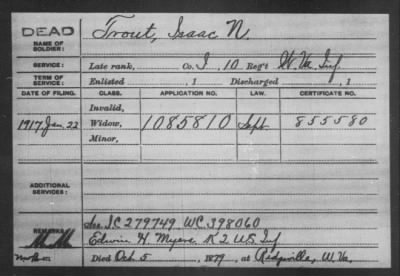 DEAD
Trout, Isaac N.
NAME OF SOLDIER:
SERVICE: Late rank, Co. I 10 Reg't W. Va. Inf.
TERM OF SERVICE: Enlisted , 1 Discharged , 1
DATE OF FILING. CLASS. APPLICATION NO. LAW. CERTIFICATE NO.
Invalid,
1917 Jan. 22 Widow, 1085810 Sept 855580
Minor,
ADDITIONAL SERVICES:
REMARKS See IC 279749 WC 398060
Edwin H. Myers. K 2 U.S. Inf
Died Oct. 5 , 1879, at Ridgeville, W. Va.